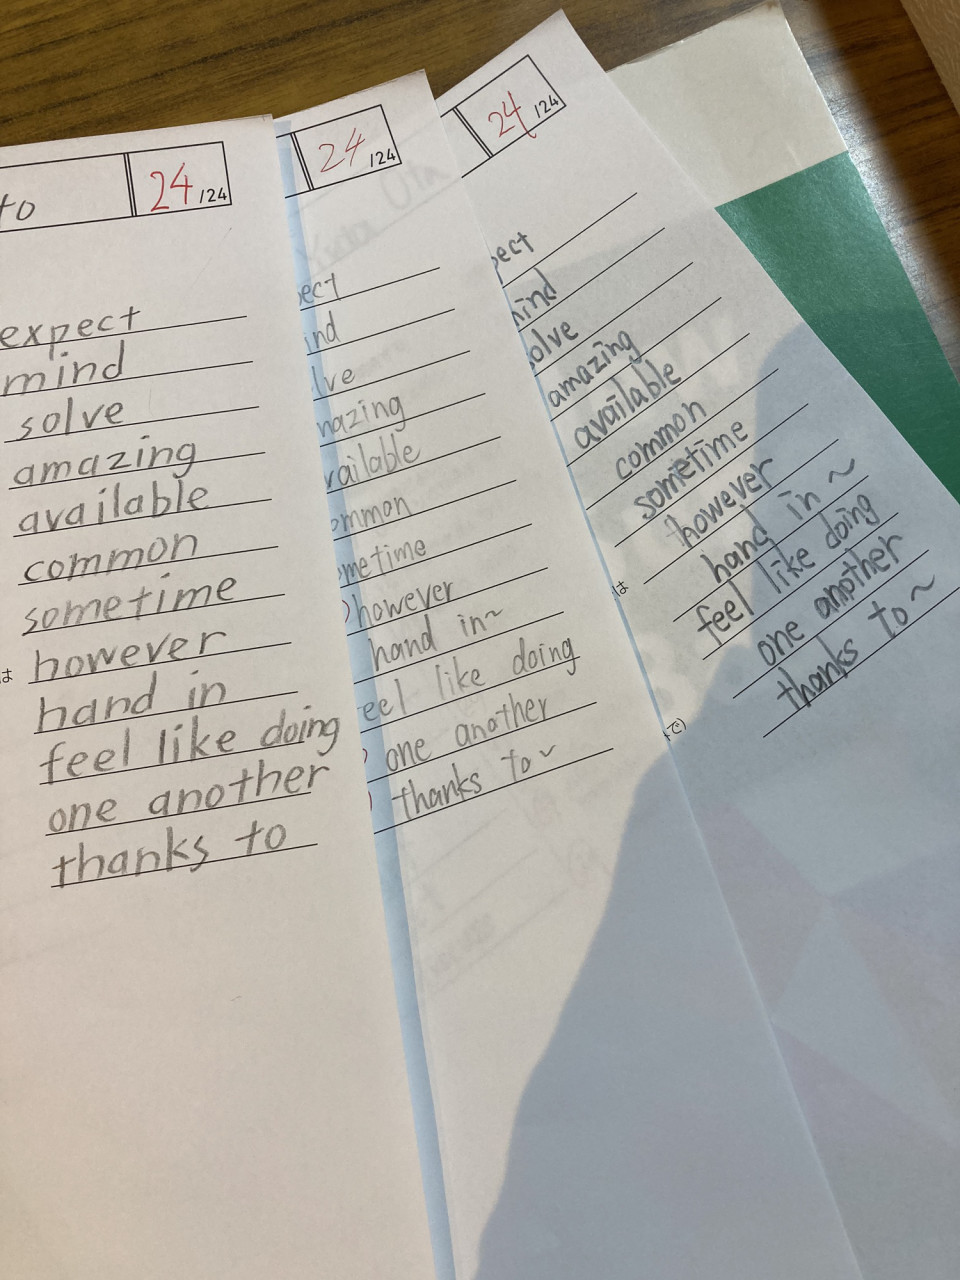 to
24 /24
expect
mind
solve
amazing
available
common
sometime
は however
hand in
feel like doing
one another
thanks to
24 /24
ect
ind
lve
mazing
vailable
ommon
ometime
however
hand in~
eel like doing
one another
thanks to~
24 /24
pect
ind
olve
amazing
available
common
sometime
は however
hand in~
feel like doing
で) one another
thanks to~